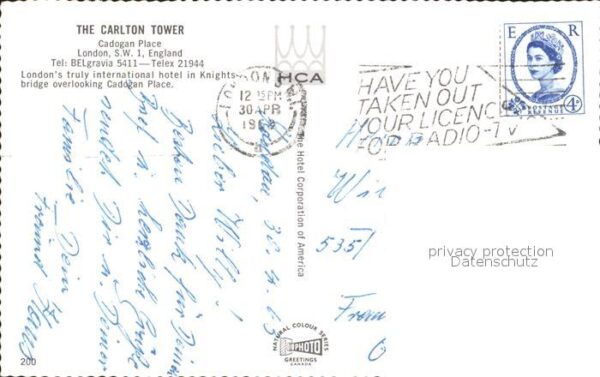 THE CARLTON TOWER
Cadogan Place
London, S.W. 1, England
Tel: BELgravia 5411—Telex 21944
London's truly international hotel in Knights-
bridge overlooking Cadogan Place.
HCA
The Hotel Corporation of America
E R
POSTAGE
REVENUE
4D
LONDON
12 15 PM
30 APR
HAVE YOU
TAKEN OUT
YOUR LICENCE
FOR RADIO-TV
London, 30.4.63
Lieber Willy!
Besten Dank für Deine
u. herzliche Grüße
sendet Dir u. Deiner
Familie Dein
Freund Hans
535/
privacy protection
Datenschutz
NATURAL COLOUR SERIES
PHOTO
GREETINGS
CANADA
200